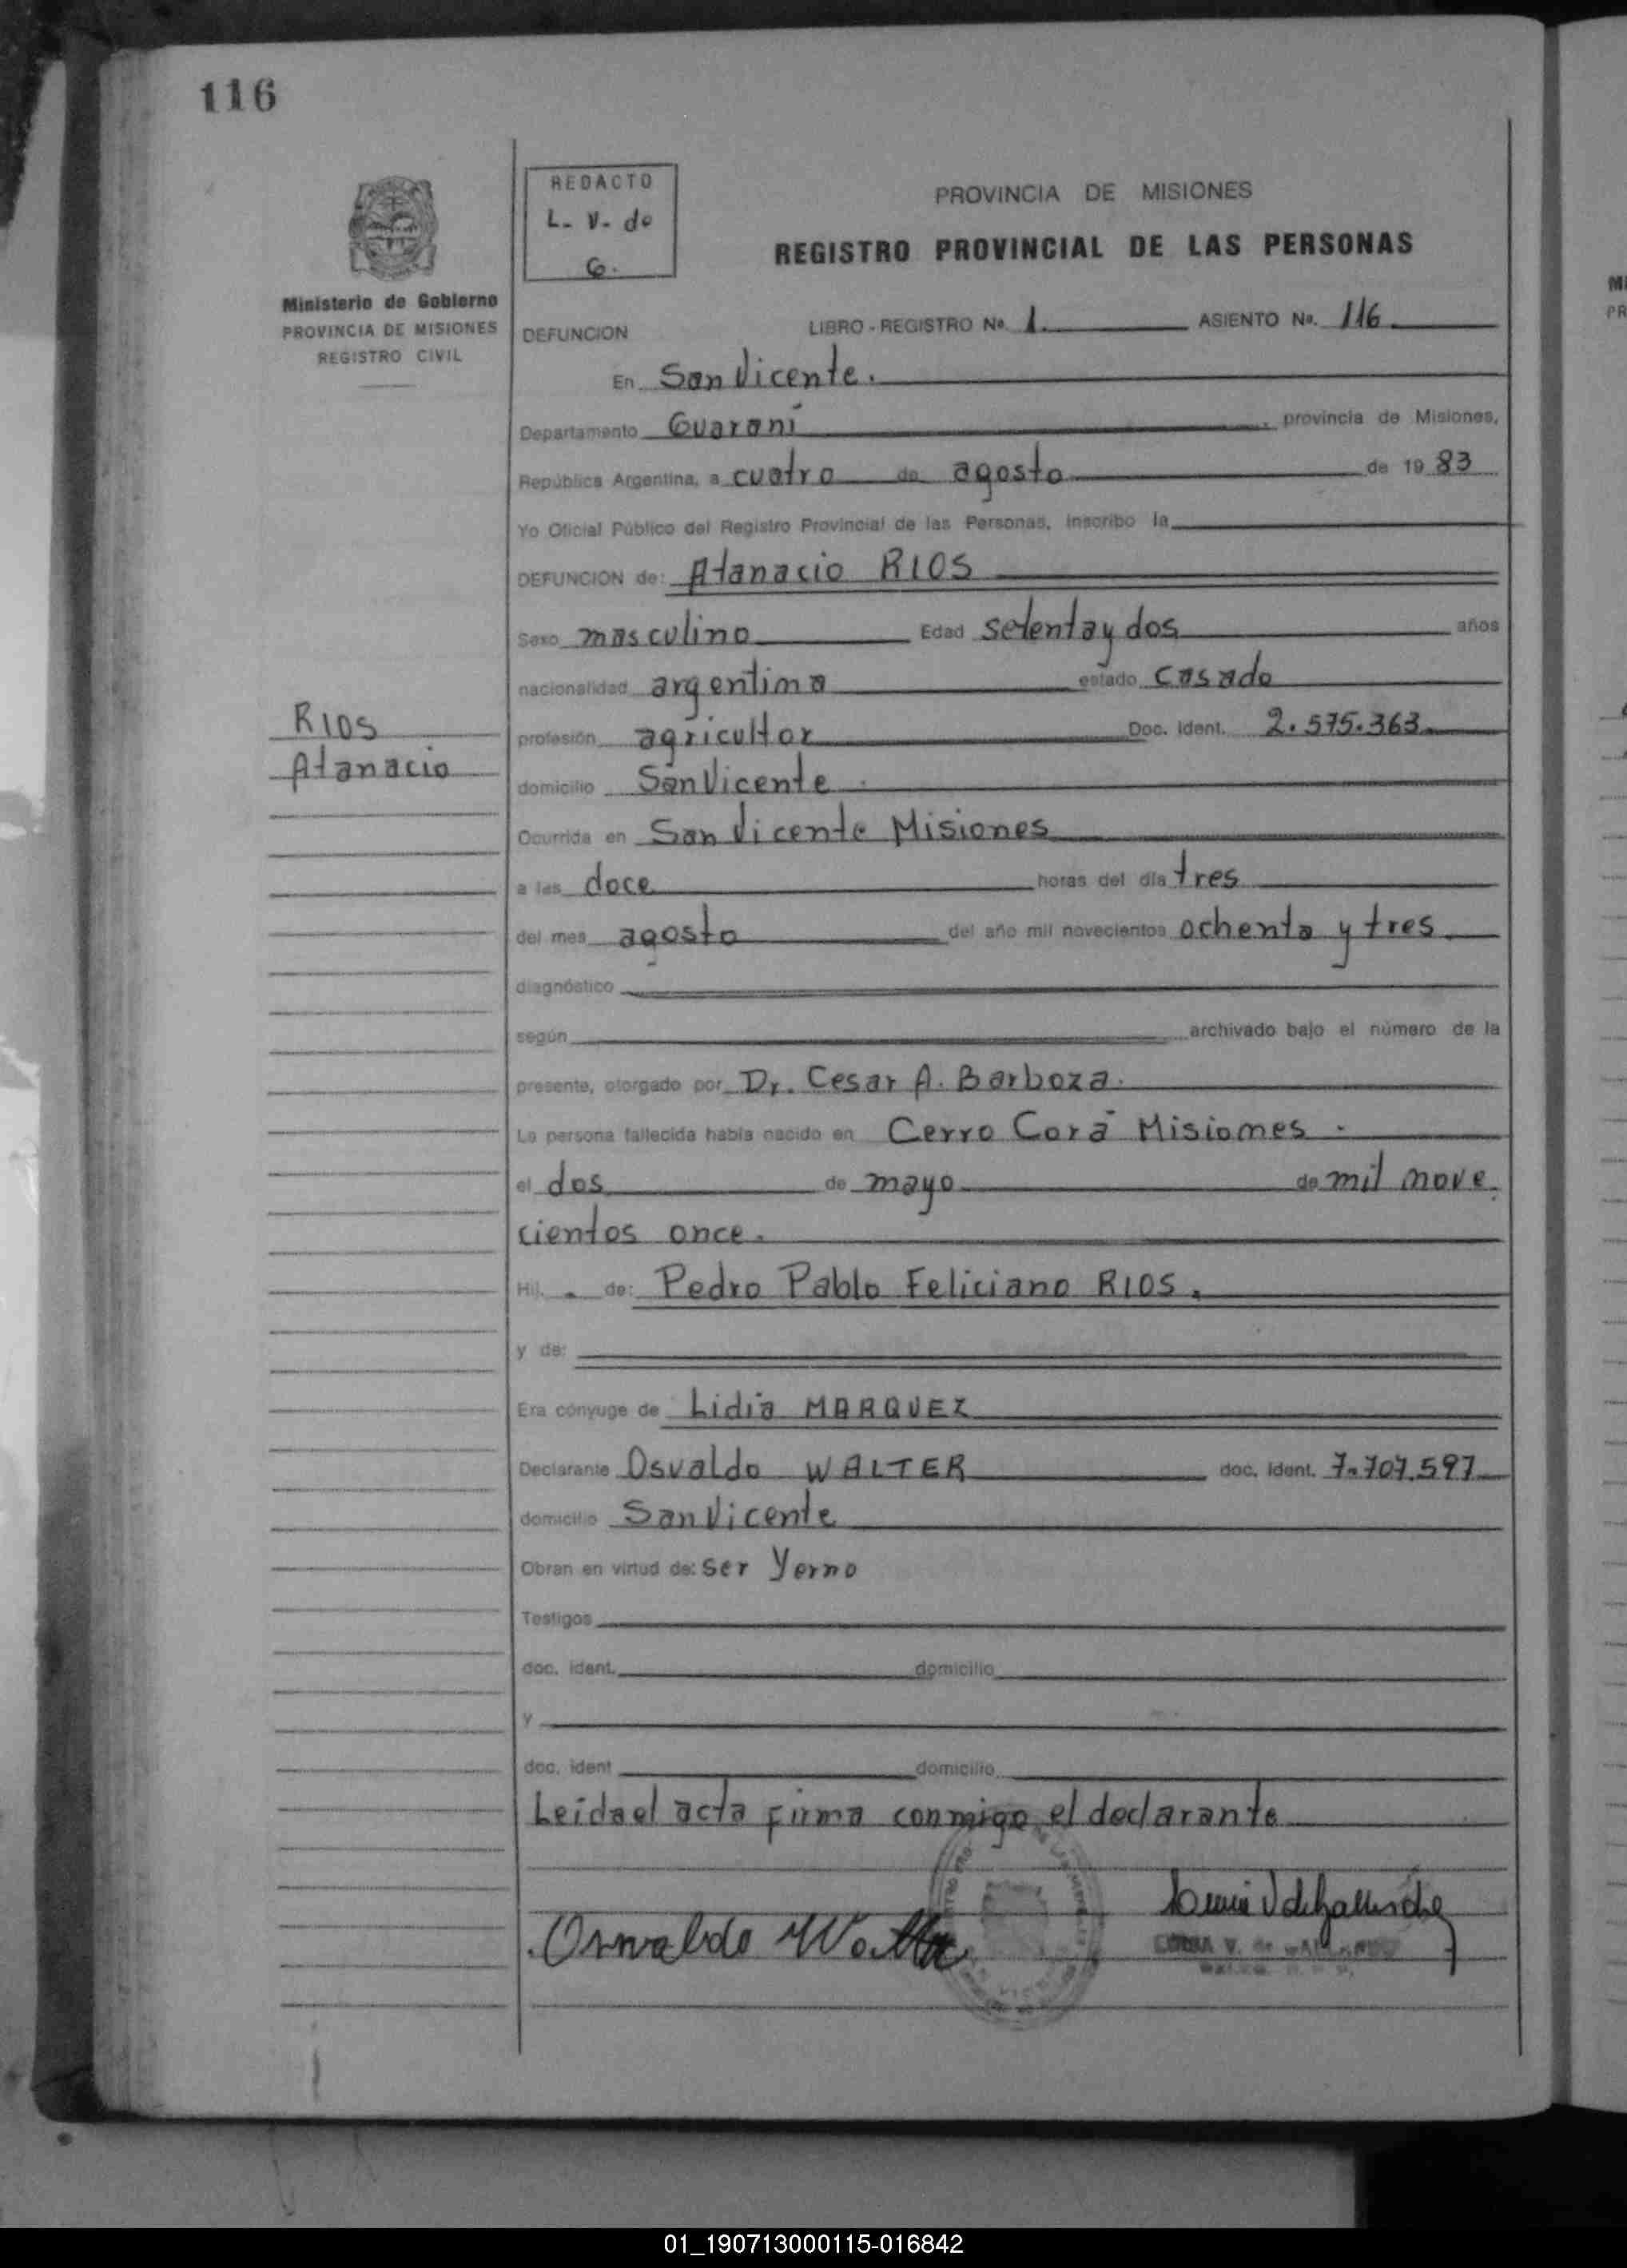 116
REDACTO
L- V- de
G.
Ministerio de Gobierno
PROVINCIA DE MISIONES
REGISTRO CIVIL
PROVINCIA DE MISIONES
REGISTRO PROVINCIAL DE LAS PERSONAS
DEFUNCION LIBRO - REGISTRO No. 1. ASIENTO No. 116
En San Vicente.
Departamento Guaraní, provincia de Misiones,
República Argentina, a cuatro de agosto de 19 83
Yo Oficial Público del Registro Provincial de las Personas, inscribo la
DEFUNCION de: Atanacio RIOS
Sexo masculino Edad setenta y dos años
nacionalidad argentina estado casado
RIOS
Atanacio
profesión agricultor Doc. Ident. 2.575.363
domicilio San Vicente
Ocurrida en San Vicente Misiones
a las doce horas del día tres
del mes agosto del año mil novecientos ochenta y tres
diagnóstico
según archivado bajo el número de la
presente, otorgado por Dr. Cesar A. Barboza.
La persona fallecida había nacido en Cerro Corá Misiones.
el dos de mayo de mil nove
cientos once.
Hij. de: Pedro Pablo Feliciano RIOS.
y de:
Era cónyuge de Lidia MARQUEZ
Declarante Osvaldo WALTER doc. Ident. 7.707.597
domicilio San Vicente
Obran en virtud de: ser Yerno
Testigos
doc. ident. domicilio
y
doc. ident domicilio
Leida el acta firma conmigo el declarante
Osvaldo Walter
01_190713000115-016842